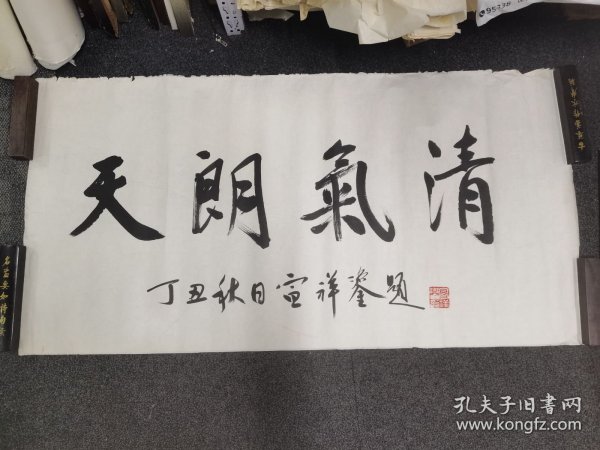 天朗氣清
丁丑秋日宣祥鎏题
孔夫子旧书网
www.kongfz.com